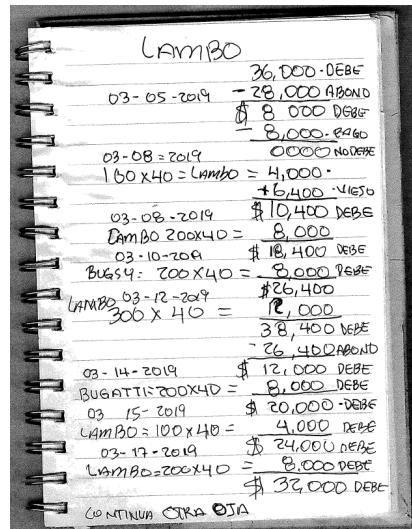 LAMBO
36,000-DEBE
03-05-2019 -28,000 ABONO
$ 8 000 DEBE
- 8,000-PAGO
03-08=2019 0000 NO DEBE
100X40=LAMBO = 4,000-
+6,400-VIEJO
03-08-2019 $10,400 DEBE
LAMBO 200X40= 8,000
03-10-2019 $ 18,400 DEBE
BUGSY: 200X40= 8,000 DEBE
LAMBO 03-12-2019 $26,400
300 X 40 = 12,000
38,400 DEBE
-26,400 ABONO
03-14-2019 $ 12,000 DEBE
BUGATTI=200X40= 8,000 DEBE
03 15-2019 $ 20,000-DEBE
LAMBO=100X40= 4,000 DEBE
03-17-2019 $ 24,000 DEBE
LAMBO=200X40 = 8,000 DEBE
$ 32,000 DEBE
CONTINUA OTRA OJA